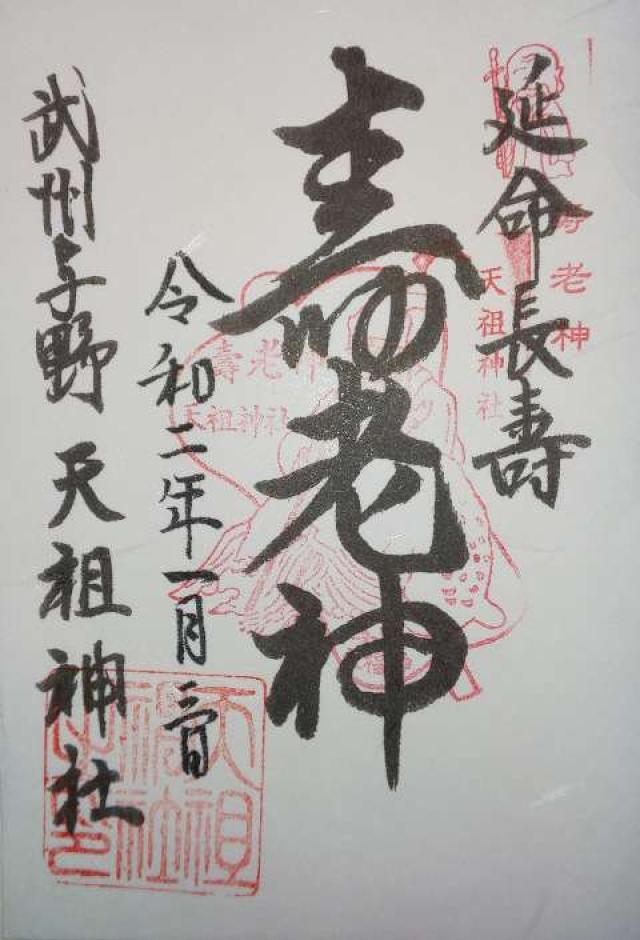 延命長壽
寿老神
天祖神社
壽老神
令和二年一月三日
武州与野 天祖神社
壽老神
天祖神社
天祖神社之印